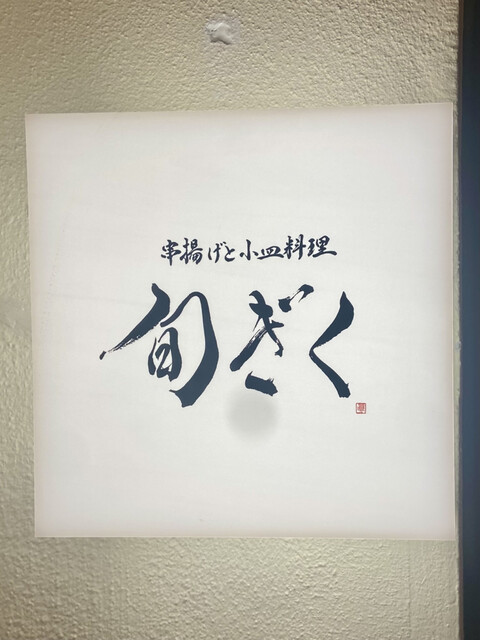 串揚げと小皿料理
旬ぎく